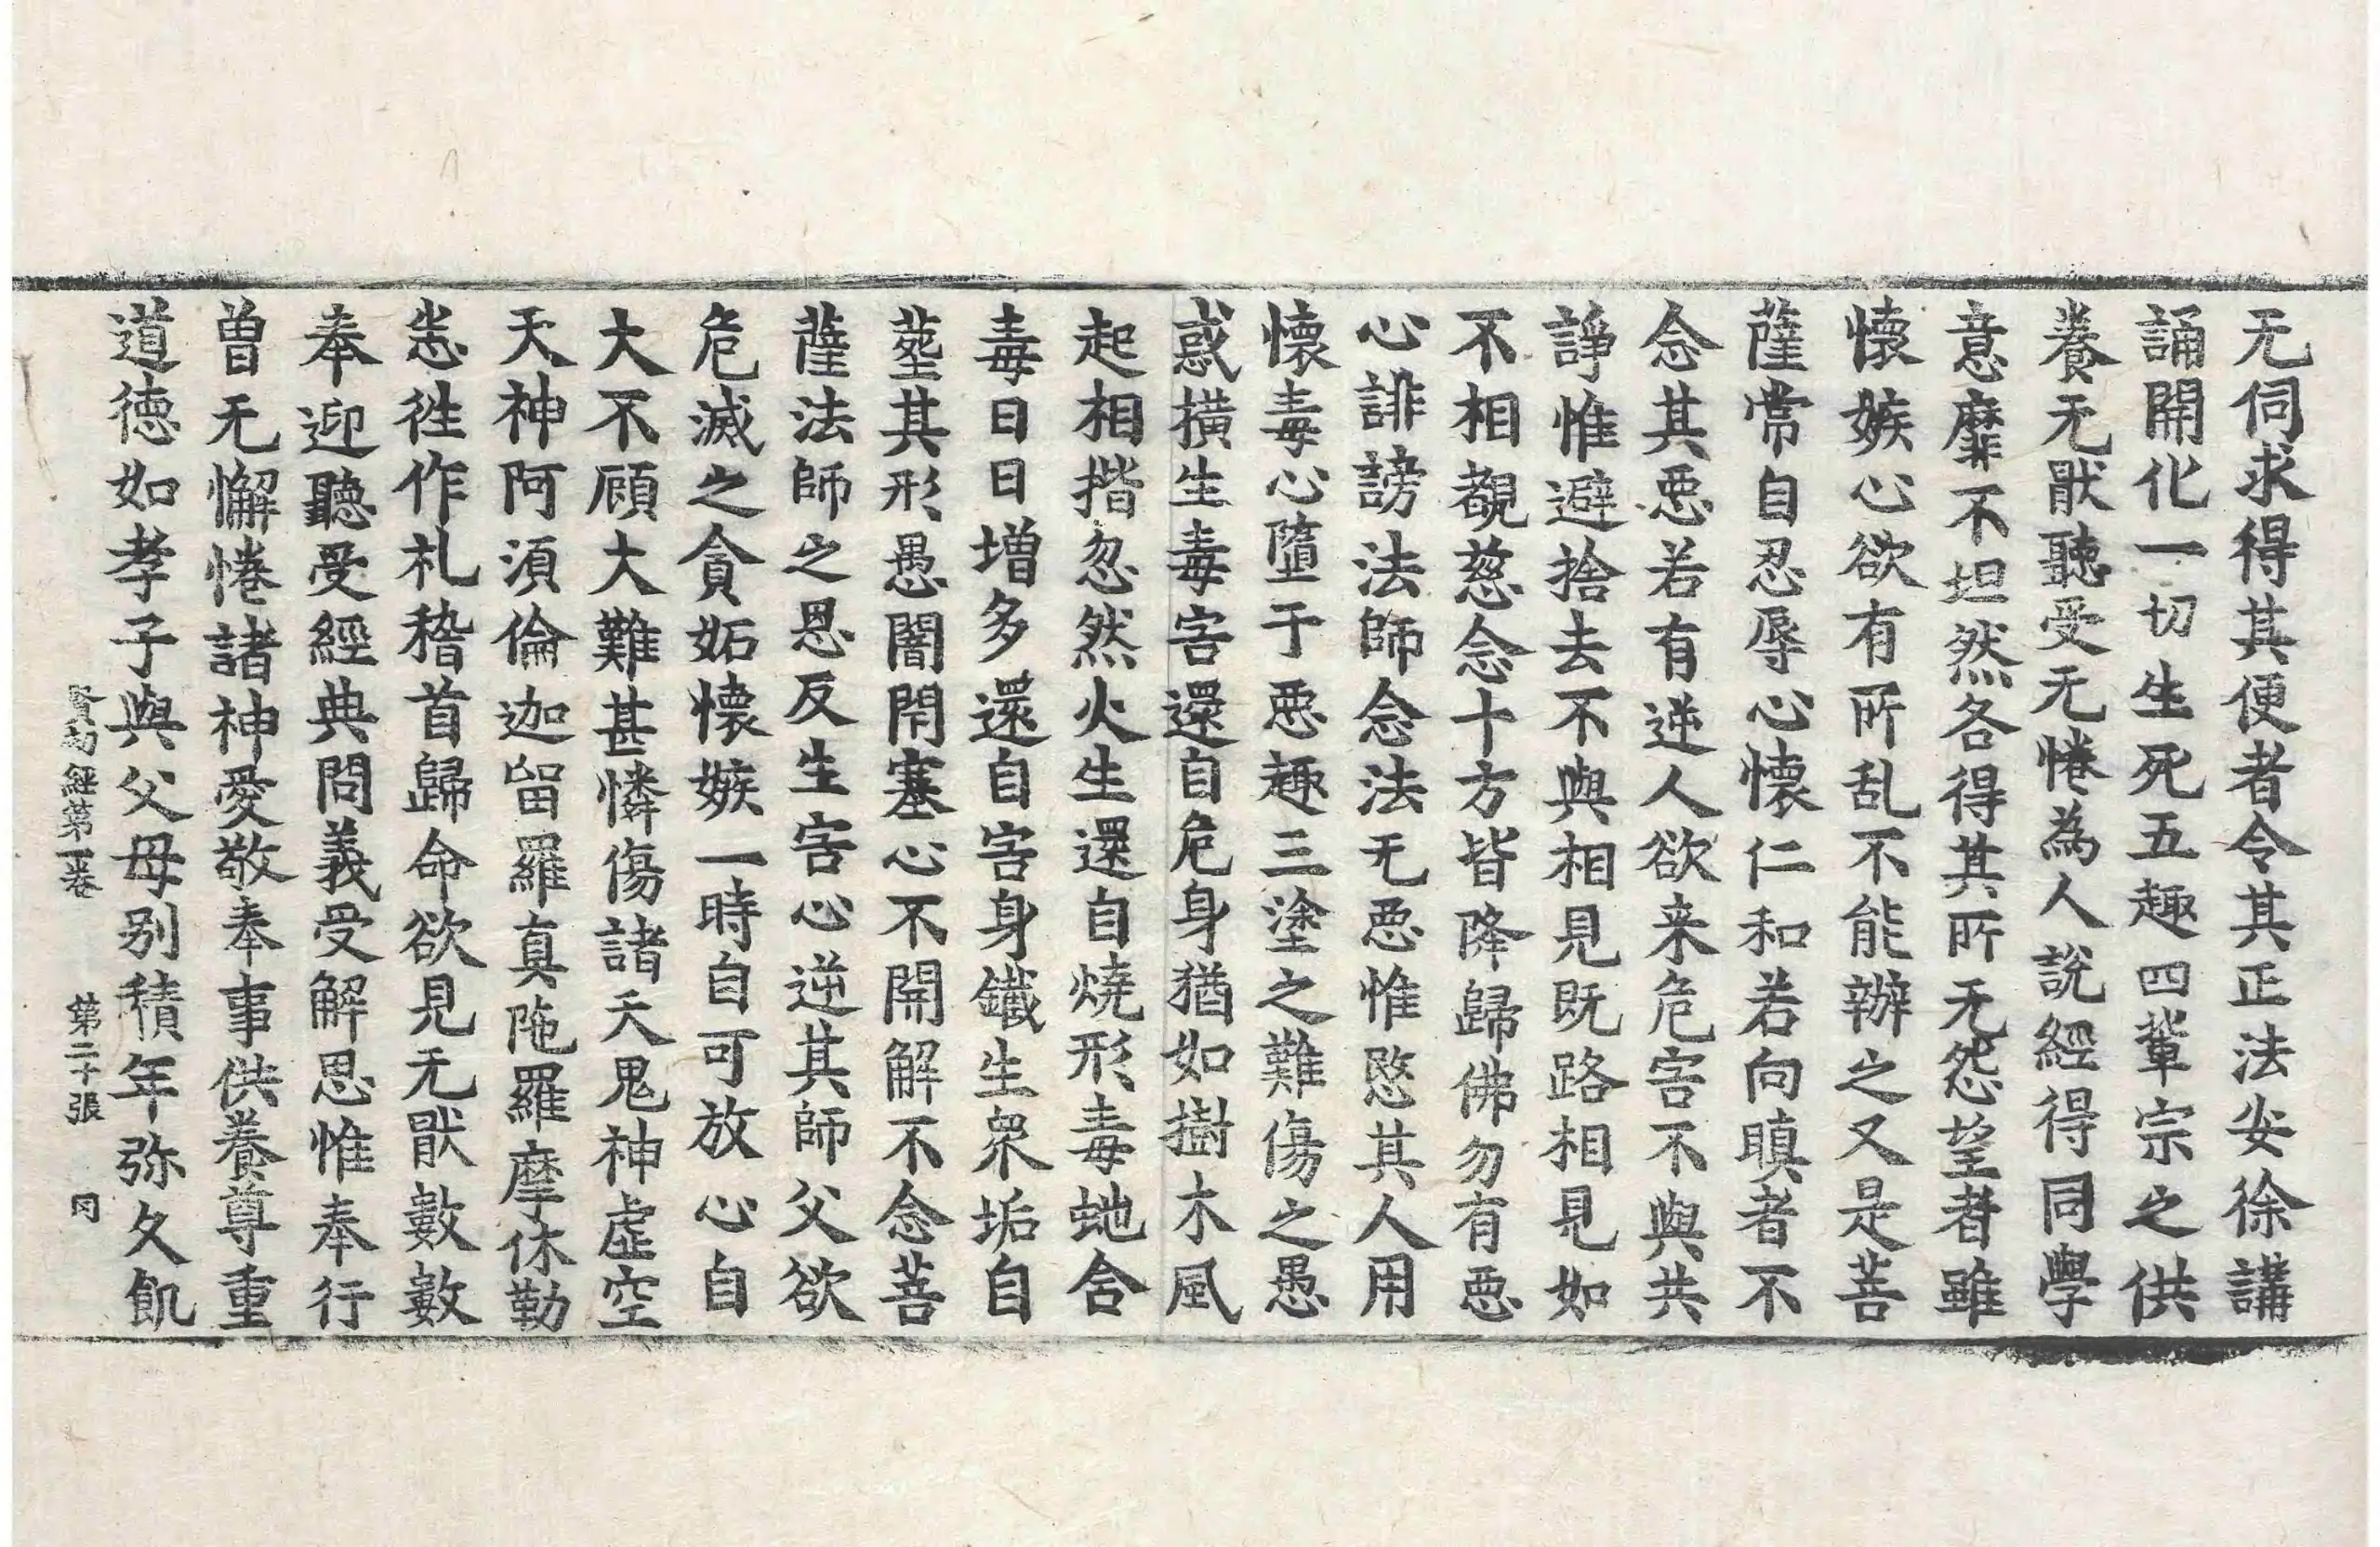 无伺求得其便者令其正法安徐講
誦開化一切生死五趣四輩宗之供
養无猒聽受无惓為人說經得同學
意靡不坦然各得其所无怨望者雖
懷嫉心欲有所乱不能辦之又是菩
薩常自忍辱心懷仁和若向瞋者不
念其惡若有逆人欲来危害不與共
諍惟避捨去不與相見既路相見如
不相覩慈念十方皆降歸佛勿有惡
心誹謗法師念法无惡惟愍其人用
懷毒心墮于惡趣三塗之難傷之愚
惑橫生毒害還自危身猶如樹木風
起相揩忽然火生還自燒形毒虵含
毒日日增多還自害身鐵生衆垢自
蓥其形愚闇閇塞心不開解不念菩
薩法師之恩反生害心逆其師父欲
危滅之貪妬懷嫉一時自可放心自
大不顧大難甚憐傷諸天鬼神虛空
天神阿須倫迦留羅真陁羅摩休勒
悉徃作礼稽首歸命欲見无猒數數
奉迎聽受經典問義受解思惟奉行
曾无懈惓諸神愛敬奉事供養尊重
道德如孝子與父母别積年弥久飢
賢劫經第一卷 第二十張 同